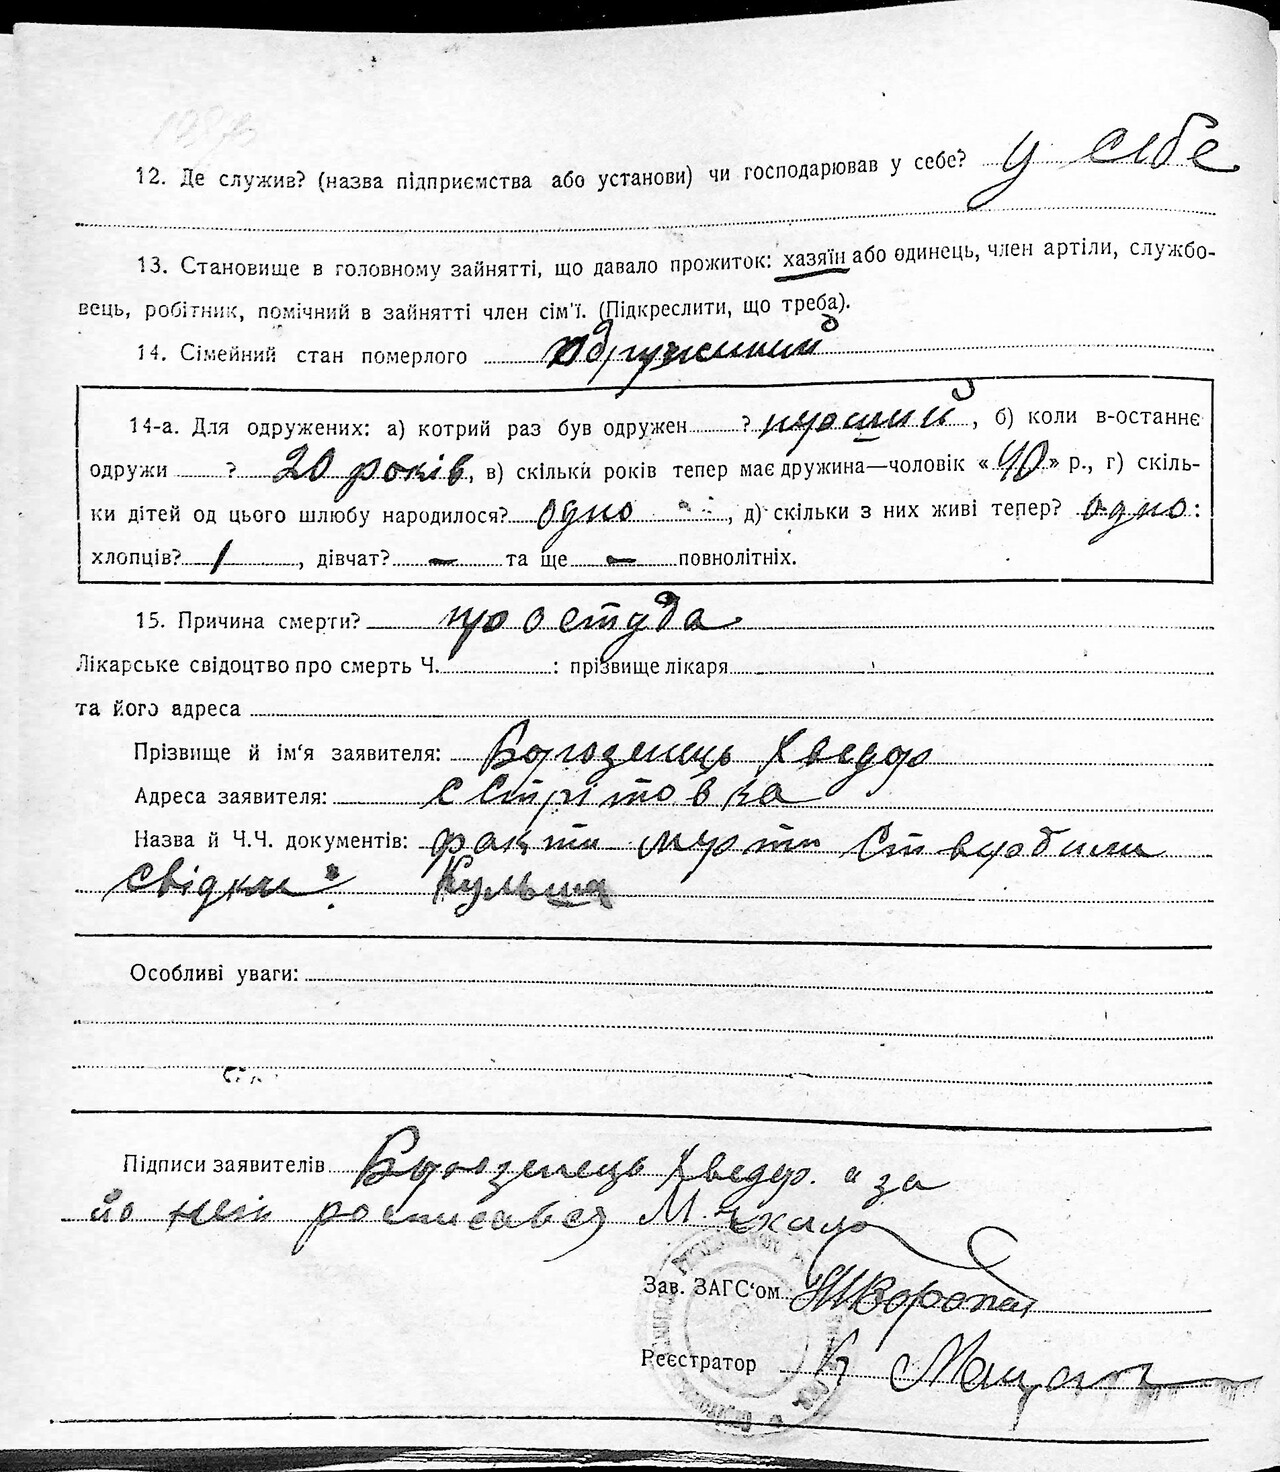 12. Де служив? (назва підприємства або установи) чи господарював у себе? у себе
13. Становище в головному зайнятті, що давало прожиток: хазяїн або одинець, член артіли, службо-
вець, робітник, помічний в зайнятті член сім'ї. (Підкреслити, що треба).
14. Сімейний стан померлого одружений
14-а. Для одружених: а) котрий раз був одружен ? перший, б) коли в-останнє
одружи ? 20 років, в) скільки років тепер має дружина—чоловік «40» р., г) скіль-
ки дітей од цього шлюбу народилося? одно, д) скільки з них живі тепер? одно:
хлопців? 1, дівчат? — та ще — повнолітніх.
15. Причина смерти? простуда
Лікарське свідоцтво про смерть Ч. : прізвище лікаря
та його адреса
Прізвище й ім'я заявителя: Хведор
Адреса заявителя: с Стрітовка
Назва й Ч.Ч. документів: факти мерти
свідки: Кульша
Особливі уваги:
Підписи заявителів Хведор. за
росписався
Зав. ЗАГС'ом
Реєстратор